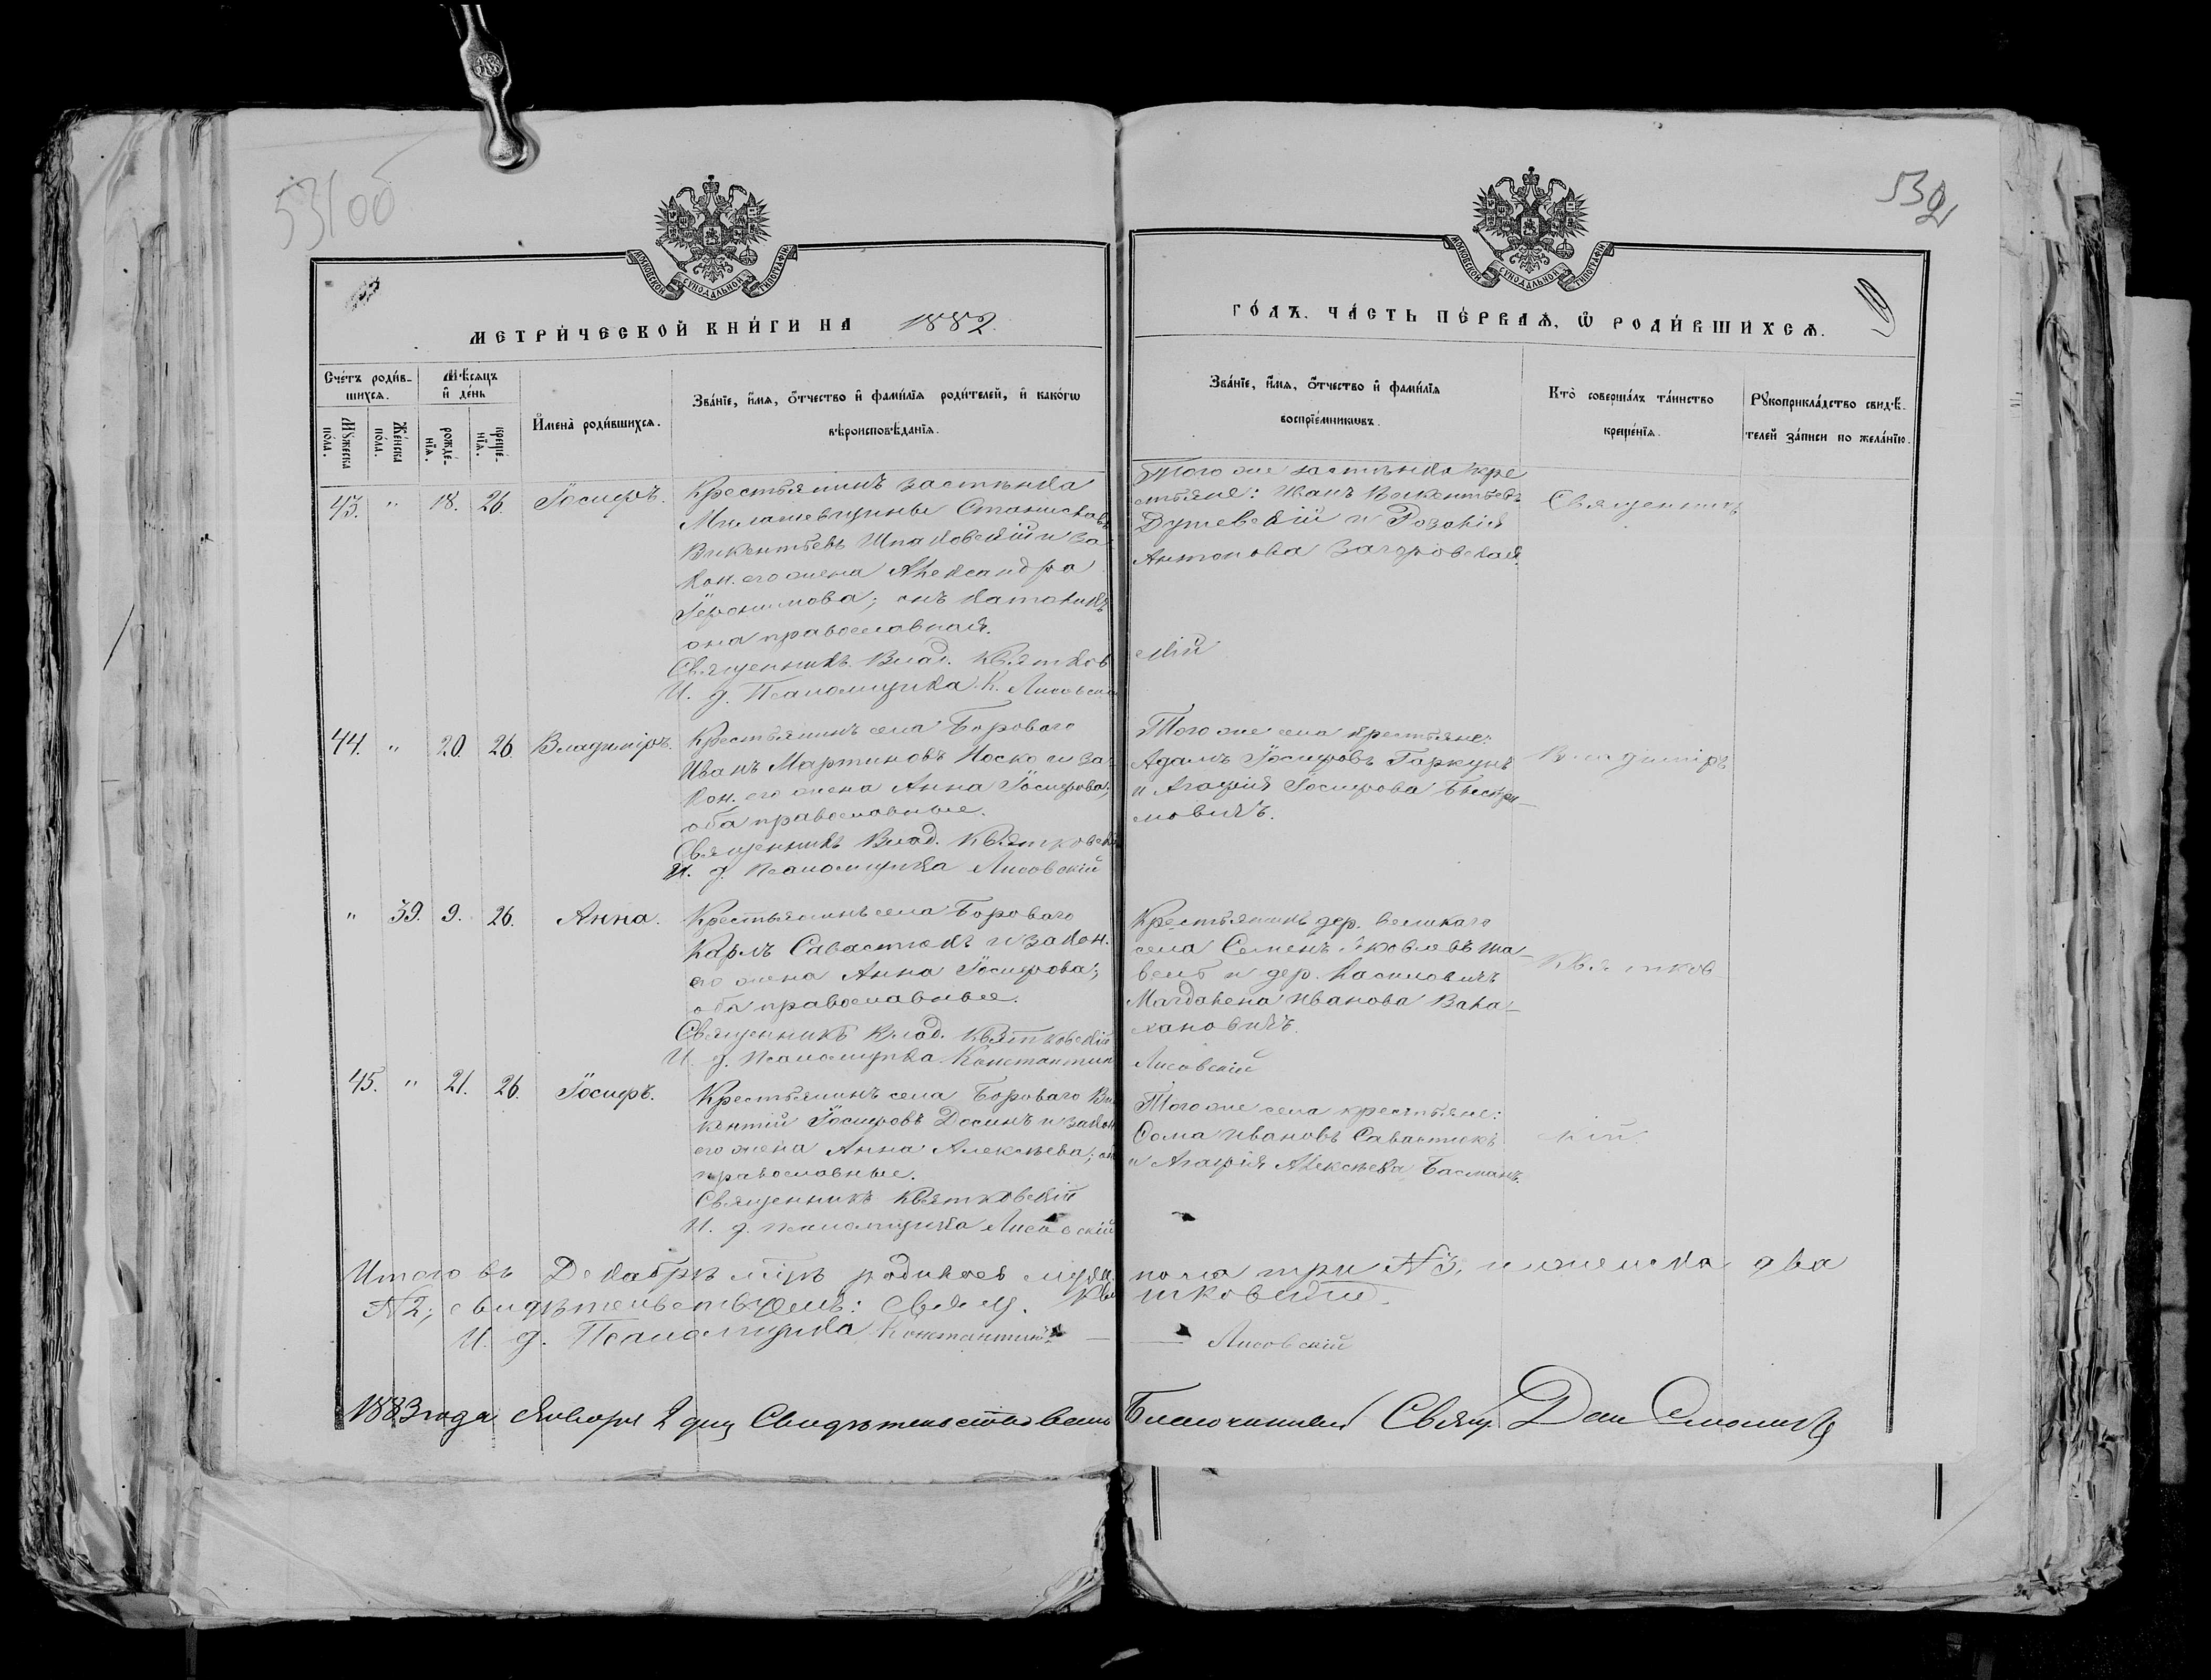 531об
532
МОСКОВСКОЙ СУНОДАЛЬНОЙ ТИПОГРАФІИ
МОСКОВСКОЙ СУНОДАЛЬНОЙ ТИПОГРАФІИ
МЕТРИ́ЧЕСКОЙ КНИ́ГИ НА 1882.
ГО́ДЪ. ЧА́СТЬ ПЕ́РВАѦ, Ѽ РОДИ́ВШИХСѦ.
Сче́тъ роди́в-
шихсѧ.
Мꙋ́жеска по́ла.
Же́нска по́ла.
Мѣ́сѧцъ
и҆ де́нь
рожде́-
нїѧ.
креще́-
нїѧ.
И҆мена̀ роди́вшихсѧ.
Зва́нїе, и҆́мѧ, ѻ҆́тчество и҆ фами́лїѧ роди́телей, и҆ како́гѡ
вѣроисповѣ́данїѧ.
Зва́нїе, и҆́мѧ, ѻ҆́тчество и҆ фами́лїѧ
воспрїе́мникѡвъ.
Кто̀ соверша́лъ та́инство
креще́нїѧ.
Рꙋкоприкла́дство свидѣ́-
телей за́писи по жела́нїю.
43. " 18. 26. Іосифъ.
Крестьянинъ застѣнка
Милашевщины Станиславъ
Викентьевъ Шпаковскій и за-
кон. его жена Александра
Іеронимова; онъ католикъ
она православная.
Священникъ Влад. Квятков
И. д. Псаломщика К. Лисовскій
Того же застѣнка кре
стьяне: Иванъ Викентьевъ
Душевскій и Розалія
Антонова
скій
Священникъ
44. " 20. 26. Владиміръ.
Крестьянинъ села Бороваго
Иванъ Мартиновъ Носко и за-
кон. его жена Анна Іосифова;
оба православные.
Священникъ Влад. Квятковскій
И. д. псаломщика Лисовскій
Того же села крестьяне:
Адамъ Іосифовъ Гаркунъ
и Агафія Іосифова
мовичъ.
Владиміръ
" 39. 9. 26. Анна.
Крестьянинъ села Бороваго
Карлъ Савастюкъ и закон.
его жена Анна Іосифова;
оба православные.
Священникъ Влад. Квятковскій
И. д. псаломщика Константин
Крестьянинъ дер. Великаго
села Семенъ Яковлевъ
и дер.
Магдалена Иванова Вала-
хановичъ.
Лисовскій
Квятков
45. " 21. 26. Іосифъ.
Крестьянинъ села Бороваго Ви
кентій Іосифовъ Досинъ и закон
его жена Анна Алексѣева; оба
православные.
Священникъ Квятковскій
И. д. псаломщика Лисовскій
Того же села крестьяне:
Ѳома Ивановъ Савастюкъ
и Агафія Алексѣева Басманъ.
скій.
Итого въ Декабрѣ м-цѣ родилось муж. пола три № 3, и женска два
№ 2; свидѣтельствуемъ: Свящ. Квятковскій.
И. д. Псаломщика Константинъ — Лисовскій
1883 года Января 2 дня Свидѣтельствовалъ Благочинный Свящ. Дан